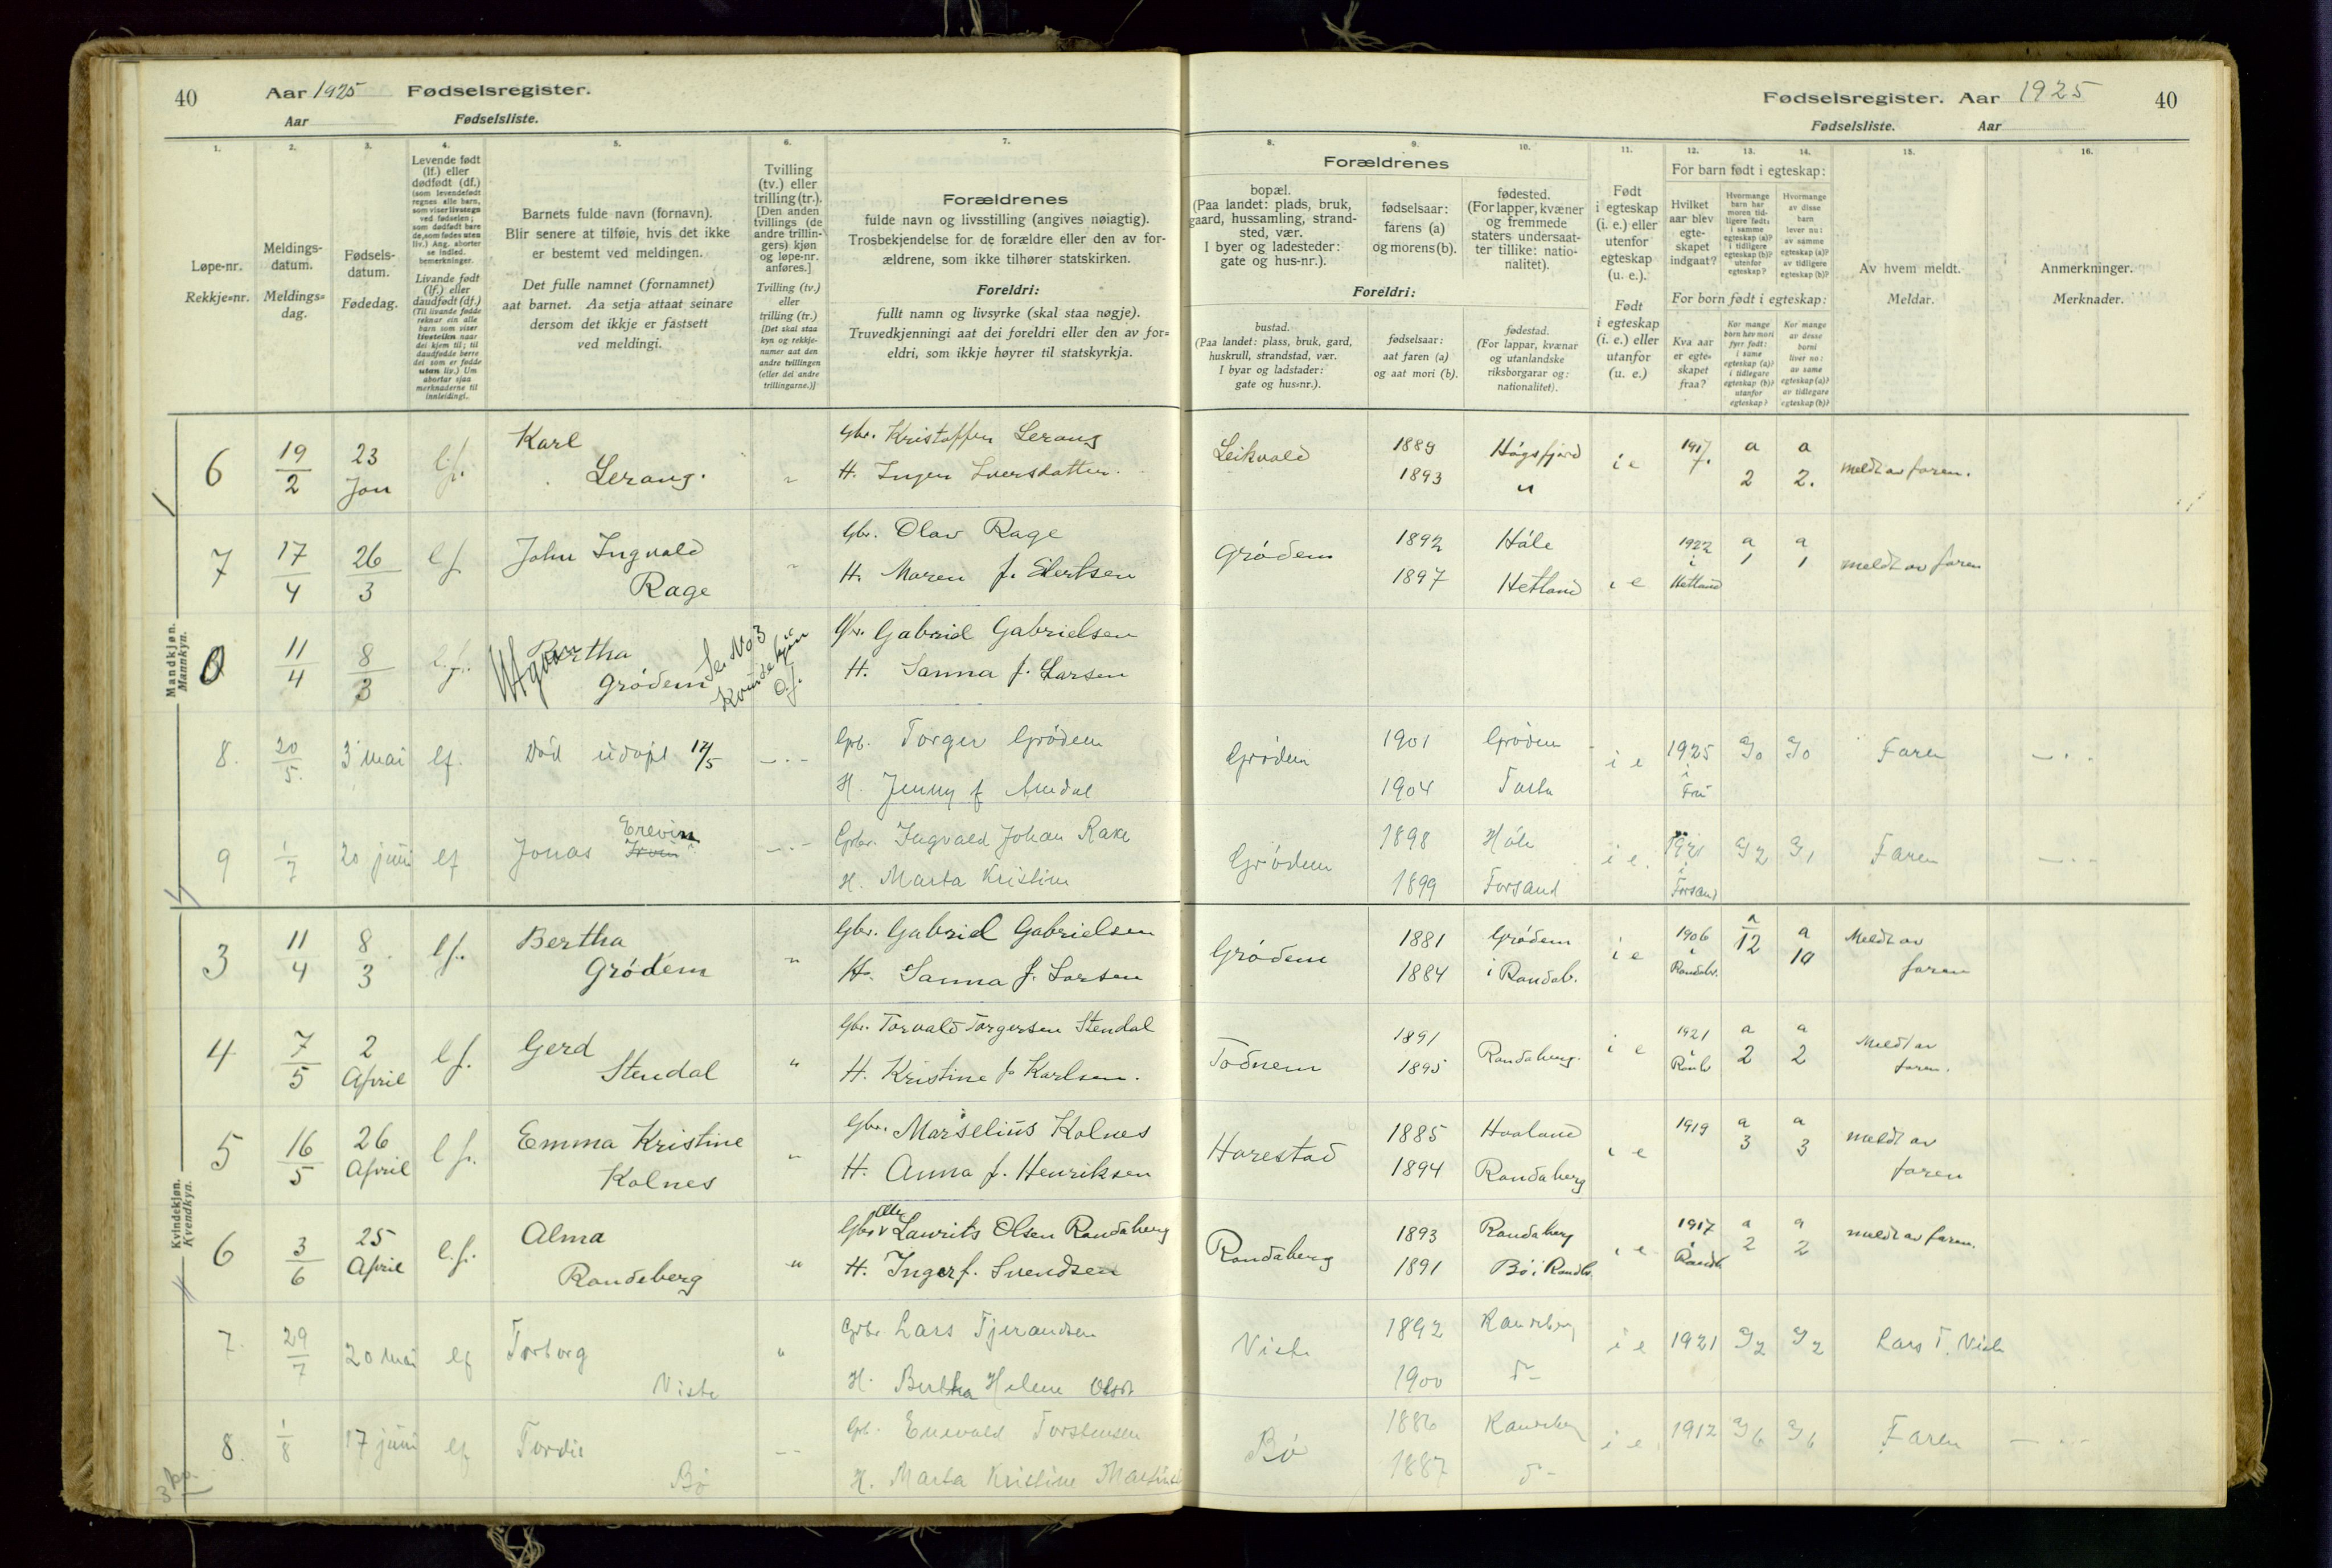 40 Aar 1925 Fødselsregister.
Aar Fødselsliste.
1.
Løpe-nr.
Rekkje=nr.
2.
Meldings-
datum.
Meldings=
dag.
3.
Fødsels-
datum.
Fødedag.
4.
Levende født
(lf.) eller
dødfødt (df.)
(som levendefødt
regnes alle barn,
som viser livstegn
ved fødselen;
som dødfødt bare
de, som fødes uten
liv.) Ang. aborter
se indled.
bemerkninger.
Livande født
(lf.) eller
daudfødt (df.)
(Til livande fødde
reknar ein alle
barn som viser
livsteikn naar
dei kjem til; til
daudfødde berre
dei som er fødde
utan liv.) Um
abortar sjaa
merknaderne til
innleidingi.
5.
Barnets fulde navn (fornavn).
Blir senere at tilføie, hvis det ikke
er bestemt ved meldingen.
Det fulle namnet (fornamnet)
aat barnet. Aa setja attaat seinare
dersom det ikkje er fastsett
ved meldingi.
6.
Tvilling
(tv.) eller
trilling (tr.).
[Den anden
tvillings (de
andre trillin-
gers) kjøn
og løpe-nr.
anføres.]
Tvilling (tv.)
eller
trilling (tr.)
[Det skal staa
kyn og rekkje-
numer aat den
andre tvillingen
(eller dei andre
trillingarne.)]
7.
Forældrenes
fulde navn og livsstilling (angives nøiagtig).
Trosbekjendelse for de forældre eller den av for-
ældrene, som ikke tilhører statskirken.
Foreldri:
fullt namn og livsyrke (skal staa nøgje).
Truvedkjenningi aat dei foreldri eller den av for=
eldri, som ikkje høyrer til statskyrkja.
Fødselsregister. Aar 1925 40
Fødselsliste. Aar
Forældrenes
8.
bopæl.
(Paa landet: plads, bruk,
gaard, hussamling, strand-
sted, vær.
I byer og ladesteder:
gate og hus-nr.).
9.
fødselsaar:
farens (a)
og morens (b).
10.
fødested.
(For lapper, kvæner
og fremmede
staters undersaat-
ter tillike: natio-
nalitet).
Foreldri:
bustad.
(Paa landet: plass, bruk, gard,
huskrull, strandstad, vær.
I byar og ladstader:
gate og hus=nr.).
fødselsaar:
aat faren (a)
og aat mori (b).
fødestad.
(For lappar, kvænar
og utanlandske
riksborgarar og:
nationalitet).
11.
Født
i egteskap
(i. e.) eller
utenfor
egteskap
(u. e.).
Født
i egteskap
(i. e.) eller
utanfor
(u. e.)
For barn født i egteskap:
12.
Hvilket
aar blev
egte-
skapet
indgaat?
13.
Hvormange
barn har
moren tid-
ligere født:
i samme
egteskap (a)?
i tidligere
egteskap (b)?
utenfor
egteskap?
14.
Hvormange
av disse
barn
lever nu:
av samme
egteskap (a)?
av tidligere
egteskap (b)?
For born født i egteskap:
Kva aar
er egte=
skapet
fraa?
Kor mange
born hev mori
fyrr født:
i same
egteskap (a)?
i tidlegare
egteskap (b)?
utanfor
egteskap?
Kor mange
av desse
borni
liver no:
av same
egteskap (a)?
av tidlegare
egteskap (b)?
15.
Av hvem meldt.
Meldar.
16.
Anmerkninger.
Merknader.
Mandkjøn.
Mannkyn.
6 19/2 23 Jan l.f. Karl Gbr. Kristoffer Lerang Leikvold 1889 Høgsfjord i e 1917 a a meldt av faren.
Lerang. " H. Inger Sversdatter. 1893 " 2 2.
7 17/4 26/3 l f. John Ingvald Gbr. Olav Rage Grødem 1892 Høle i e 1922 a a meldt av faren
Rage " H. Maren f. Eilertsen 1897 Hetland i Hetland 1 1
11/4 8/3 l.f. Bertha Se. No 3 Gbr. Gabriel Gabrielsen
Utgår Grødem Kvindekjøn H. Sanna f. Larsen
8. 20/5. 3 mai lf. Død udøpt 17/5 — . — Gbr. Torger Grødem Grødem 1901 Grødem i e 1925 a/0 a/0 Faren — . .
H. Jenny f Amdal 1904 Tasta i
9 1/7 20 juni lf Jonas Erevin — . — Gbr. Ingvald Johan Rake Grødem 1898 Høle i e. 1921 a/2 a/1 Faren — . —
H. Marta Kristine 1899 Forsand i Forsand
Kvindekjøn.
Kvendkyn.
3 11/4 8/3 l f. Bertha Gbr. Gabriel Gabrielsen Grødem 1881 Grødem i e 1906 a a Meldt av
Grødem " H. Sanna f. Larsen 1884 i Randab. i Randab. 12 10 faren
4 7/5 2 April l f. Gerd Gbr. Torvald Torgersen Stendal Todnem 1891 Randaberg. i e 1921 a a Meldt av
Stendal " H. Kristine f. Karlsen. 1895 i Randb 2 2 faren.
5 16/5 26 April l f. Emma Kristine Gbr. Marselius Kolnes Harestad 1885 Haaland i e 1919 a a meldt av
Kolnes " H. Anna f. Henriksen 1894 Randaberg 3 3 faren
6 3/6 25 April l.f. Alma Gbr. Laurits Olsen Randaberg Randaberg 1893 Randaberg i e 1917 a a meldt av faren.
Randeberg " H. Inger f. Svendsen 1891 Bø i Randb. i Randb 2 2
7. 29/7 20 mai lf Torborg " Gbr Lars Tjerandsen Viste 1892 Randeberg i e 1921 a/2 a/2 Lars T. Viste
Viste H. Bertha Helene Olsdt 1900 d-
8. 1/8 17 juni lf Tordis -- Gbr. Enevald Torstensen Bø 1886 Randeberg i e. 1912 a/6 a/6 Faren — . . —
Bø H. Marta Kristine 1887 d-